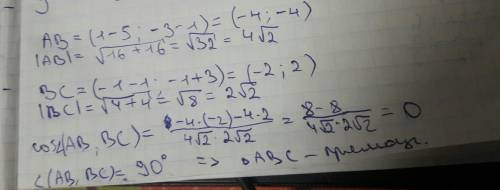 AB = (1-5 ; -3-1) = (-4; -4)
|AB| = √16+16 = √32 = 4√2
BC = (-1-1; -1+3) = (-2; 2)
|BC| = √4+4 = √8 = 2√2
cos(AB, BC) = -4·(-2)-4·2 / 4√2·2√2 = 8-8 / 4√2·2√2 = 0
∠(AB, BC) = 90° => △ABC - прямоуг.